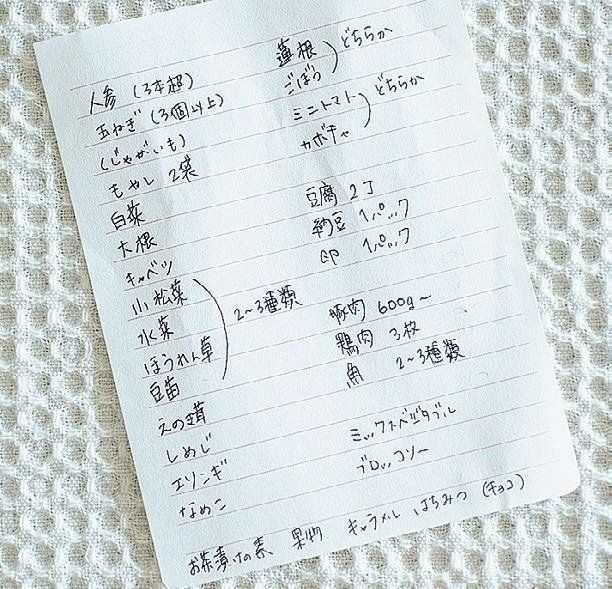 人参 (3本超)
玉ねぎ (3個以上)
(じゃがいも)
もやし 2袋
白菜
大根
キャベツ
小松菜
水菜
ほうれん草
豆苗
2~3種類
えのき茸
しめじ
エリンギ
なめこ
蓮根
ごぼう
どちらか
ミニトマト
カボチャ
どちらか
豆腐 2丁
納豆 1パック
1パック
豚肉 600g~
鶏肉 3枚
魚 2~3種類
ミックスベジタブル
ブロッコリー
お茶漬けの素 果物 キャラメル はちみつ (チョコ)